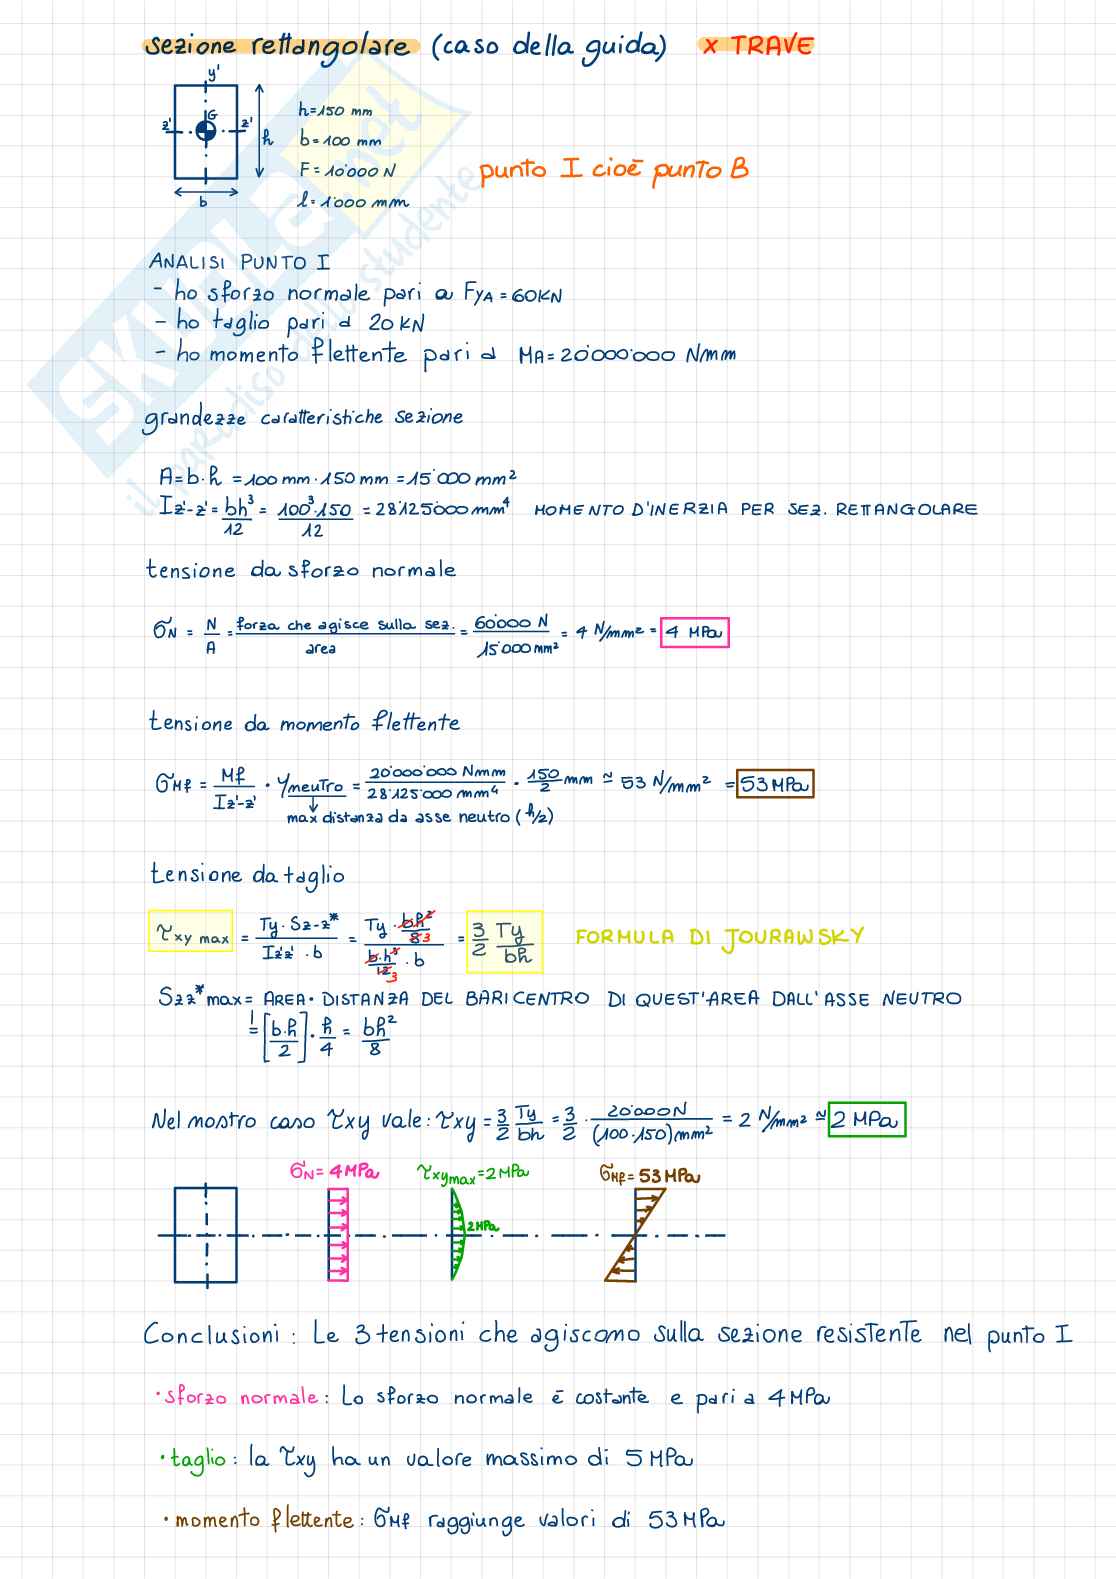 sezione rettangolare (caso della guida) x TRAVE
y'
G
z' z'
h
b
h=150 mm
b=100 mm
F=10'000 N
l=1'000 mm
punto I cioè punto B
ANALISI PUNTO I
- ho sforzo normale pari a FyA=60KN
- ho taglio pari a 20 KN
- ho momento flettente pari a MA=20'000'000 Nmm
grandezze caratteristiche sezione
A=b·h =100 mm·150 mm =15'000 mm²
Iz'-z' = bh³/12 = 100³·150/12 = 28'125'000 mm⁴ MOMENTO D'INERZIA PER SEZ. RETTANGOLARE
tensione da sforzo normale
σN = N/A = forza che agisce sulla sez./area = 60'000 N/15'000 mm² = 4 N/mm² = 4 MPa
tensione da momento flettente
σMf = Mf/Iz'-z' · yneutro = 20'000'000 Nmm/28'125'000 mm⁴ · 150/2 mm ≃ 53 N/mm² = 53 MPa
max distanza da asse neutro (h/2)
tensione da taglio
τxy max = Ty·Sz-z*/Iz'z'·b = Ty·bh²/8 3/b·h³/12 3·b = 3/2 Ty/bh FORMULA DI JOURAWSKY
Szz*max= AREA· DISTANZA DEL BARICENTRO DI QUEST'AREA DALL'ASSE NEUTRO
= [b·h/2]·h/4 = bh²/8
Nel nostro caso τxy vale: τxy = 3/2 Ty/bh = 3/2 · 20'000N/(100·150)mm² = 2 N/mm² ≃ 2 MPa
σN= 4MPa τxymax=2MPa σMf= 53MPa
2MPa
Conclusioni: Le 3 tensioni che agiscono sulla sezione resistente nel punto I
·sforzo normale: Lo sforzo normale è costante e pari a 4MPa
·taglio: la τxy ha un valore massimo di 5 MPa
·momento flettente: σMf raggiunge valori di 53MPa
SKUOLA.net
il paradiso dello studente